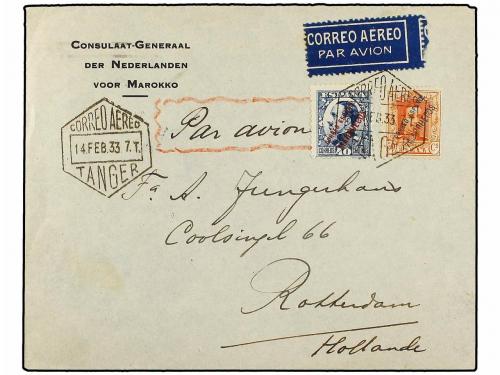 CORREO AÉREO
PAR AVION
CONSULAAT-GENERAAL
DER NEDERLANDEN
VOOR MAROKKO
CORREO AEREO
14 FEB. 33 7. T.
TANGER
Par avion
ESPAÑA
CORREO AEREO
FEB. 33
Fa A. Jungerhans
Coolsingel 66
Rotterdam
Hollande